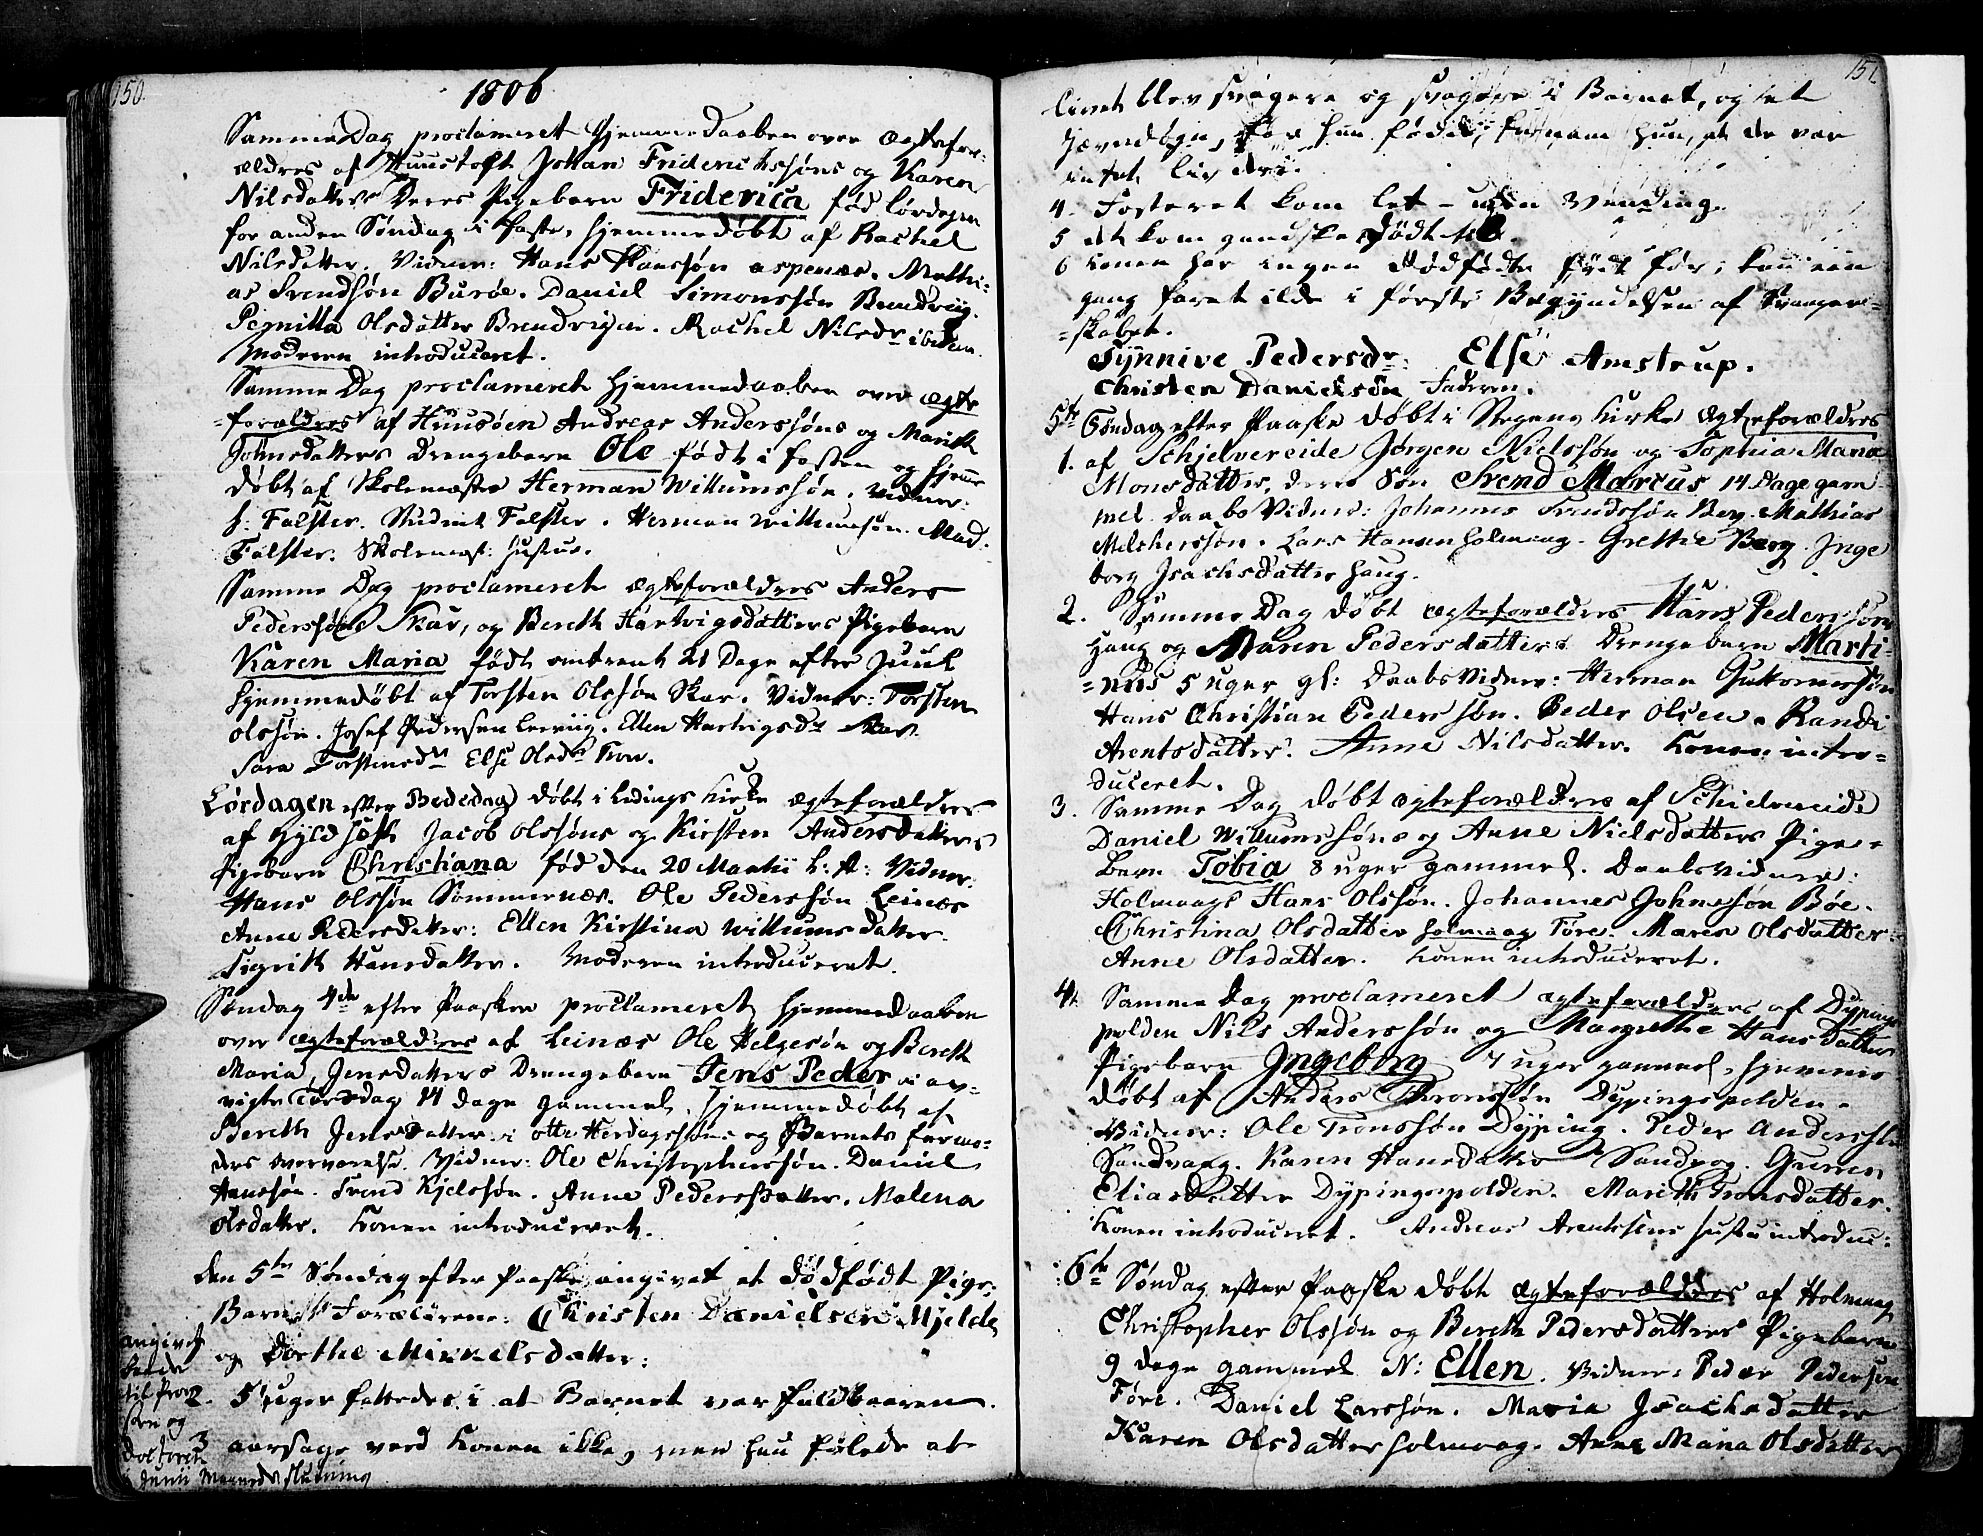 150.
1806
Samme Dag proclameret Hjemmedaaben over Ægtefor=
ældres af Huustoft Johan Friderichssøns og Karen
Nilsdatters Deres Pigebarn Friderica fød Lørdagen
for anden Søndag i Faste, hjemmedøbt af Rachel
Nilsdatter. Vidner: Hans Hanssøn Aspenæs. Mathi=
as Svendsøn Burøe. Daniel Simonssøn Brendviig.
Pernilla Olsdatter Brendvigen. Rachel Nilsdr ibidem.
Moderen introduceret.
Samme Dag proclameret Hjemmedaaben over Ægte
=forældres af Huusøen Andreas Anderssøns og Marith
Johnsdatters Drengebarn Ole født i Fasten og hjemme
døbt af Skolemester Herman Willumssøn. Vidner:
H: Falster. Student Falster. Herman Willumsøn. Mad.
Falster. Skolemest: Hustrue.
Samme Dag proclameret Ægteforældres Anders
Pederssøns Skar, og Bereth Hartvigsdatters Pigebarn
Karen Maria født omtrent 21 Dage efter Juul
hjemmedøbt af Torsten Olssøn Skar. Vidner: Torsten
Olssøn. Josef Pedersen Leeviig. Ellen Hartvigsdr Skar
Sara Torstensdr Else Olsdr Tron.
Lørdagen efter Bededag døbt i Ledings Kirke Ægteforældres
af Jacob Olssøns og Kirsten Andersdatters
Pigebarn Christiana fød den 20 Martii h: A: Vidner:
Hans Olssøn Sommernæs. Ole Pederssøn Leinæs
Anne Pedersdatter: Ellen Kirstina Willumsdatter.
Sigrith Hansdatter. Moderen introduceret.
Søndag 4de efter Paasken proclameret Hjemmedaaben
over Ægteforældres af Leinæs Ole Helgesøn og Bereth
Maria Jensdatters Drengebarn Jens Peder i av=
vigte Torsdag 11 dage gammel, hjemmedøbt af
Bereth Jensdatter i Otte og Barnets Farmo=
ders overværelse. Vidner: Ole Christophersøn. Daniel
Hanssøn. Trond Kjelssøn. Anne Pedersdatter. Malena
Olsdatter. Konen introduceret.
den 5te Søndag efter Paaske angivet et dødfødt Pige=
Barn Forældrene: Christen Danielsen Mjelde
og Dorthe Mikkelsdatter:
angivet
til Prov
sten og
Doctoren
i Junii Maaneds Slutning
2. 5 uger fattedes i at Barnet var fuldbaaren.
3 aarsage veed Konen ikke, men hun følede at
151
livet blev svagere og svagere i Barnet, og et
Jævndøgn, før hun fødte, fornam hun, at der var
intet liv deri.
4. Fosteret kom let - uden Vending.
5 det kom gandske dødt til.
6 Konen har ingen Dødfødte født før; kun een
gang faret ilde i første Begyndelsen af Svanger=
=skabet.
Synnive Pedersdr: Else Amstrup.
Christen Danielsøn Faderen.
5te Søndag efter Paaske døbt i Stegens Kirke Ægteforældres
1. af Schjelvereide Jørgen Nielssøn og Sophia Maria
Monsdatter, deres Søn Svend Marcus 14 Dage gam=
mel. Daabs Vidner: Johannes Trondssøn Berg. Mathias
Melchersøn. Lars Hansen Holmaag. Grethe Berg. Inge
borg Isachsdatter Haug.
2. Samme Dag døbt Ægteforældres Hans Pederssøns
Haug og Maren Pedersdatters Drengebarn Marti=
=nus 5 uger gl: Daabs Vidner: Herman Guttormssøn
Hans Christian Pederssøn. Peder Olsen. Randi
Arentsdatter. Anne Nilsdatter. Konen intro=
duceret.
3. Samme Dag døbt Ægteforældres af Schielvereide
Daniel Willumssøns og Anne Nielsdatters Pige=
Barn Tobia 8 uger gammel. Daabs Vidner:
Holmaag Hans Olssøn. Johannes Johnssøn Bøe.
Christina Olsdatter Holmaag Føre. Maren Olsdatter.
Anne Olsdatter. Konen introduceret.
4. Samme Dag proclameret Ægteforældres af Dypings
polden Nils Anderssøn og Margrethe Hansdatters
Pigebarn Ingeborg 7 uger gammel, hjemme
døbt af Anders Tronssøn Dypingspolden.
Vidner: Ole Tronssøn Dyping. Peder Anderssøn
Sandvaag. Karen Hansdatter Sandvog. Guren
Eliasdatter Dypingspolden. Marith Tronsdatter.
Konen introduceret. Andreas Arentsens Hustru introduc:
6te Søndag efter Paaske døbt Ægteforældres af Holmaag
Christopher Olssøn og Bereth Pedersdatters Pigebarn
9 dage gammel N: Ellen. Vidner: Peder Pedersen
Føre. Daniel Larssøn. Maria Isachsdatter
Karen Olsdatter Holmaag. Anne Maria Olsdatter